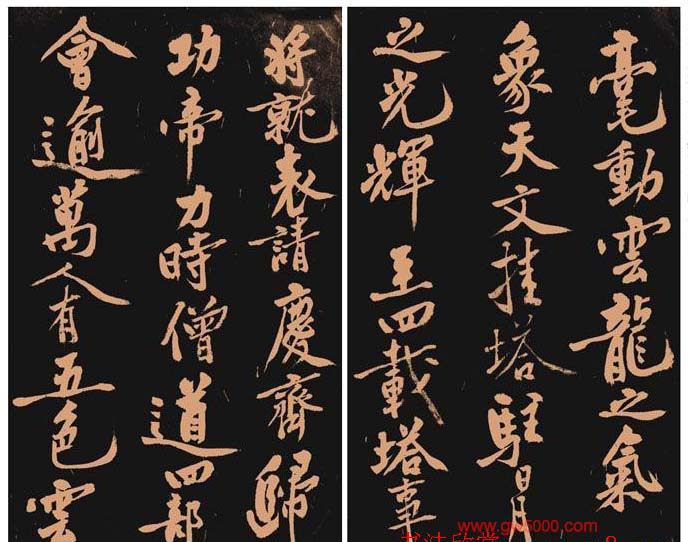 毫動雲龍之氣
象天文挂塔駐日月
之光輝至四載塔事
將就表請慶齋歸
功帝力時僧道四部
會逾萬人有五色雲
书法欣赏